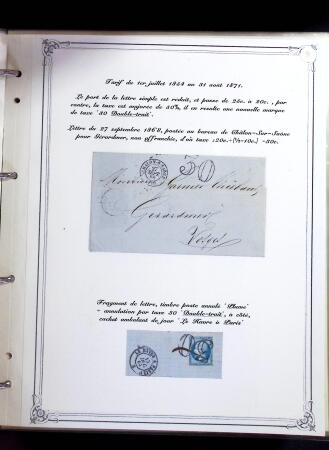 Tarif du 1er juillet 1854 au 31 aout 1871.
Le port de la lettre simple est reduit, et passe de 25c. à 20c., par
contre, la taxe est majorée de 50%, il en resulte une nouvelle marque
de taxe "30 Double-trait".
Lettre du 27 septembre 1868, postée au bureau de Châlon-Sur-Saône
pour Gérardmer, non affranchie, d'où taxe :20c.-(½=10c.) -30c.
30
Monsieur
Gerardmer
Vosges
Fragment de lettre, timbre poste annulé "Plume"
- annulation par taxe 30 "Double-trait", à côté,
cachet ambulant de jour "Le Havre à Paris"